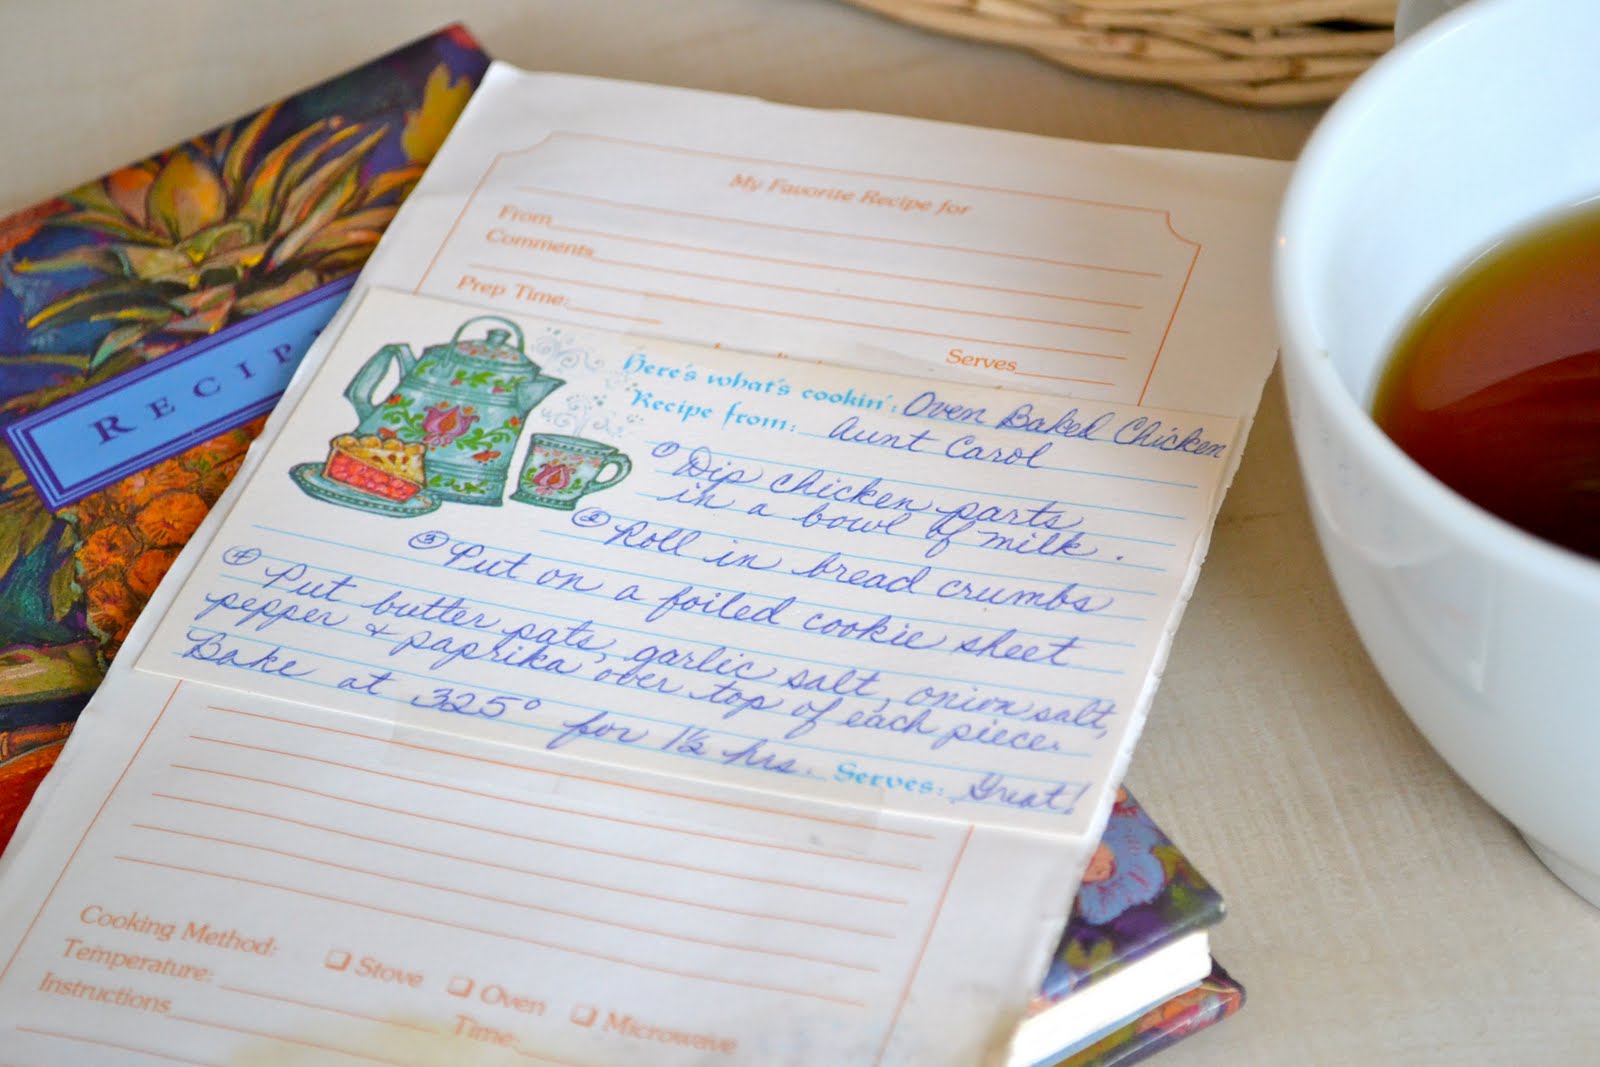 RECIP
My Favorite Recipe for
From
Comments
Prep Time:
Serves
Here's what's cookin': Oven Baked Chicken
Recipe from: Aunt Carol
① Dip chicken parts
in a bowl of milk.
② Roll in bread crumbs
③ Put on a foiled cookie sheet
④ Put butter pats, garlic salt, onion salt,
pepper & paprika over top of each piece.
Bake at 325° for 1½ hrs. Serves: Great!
Cooking Method: ❏ Stove ❏ Oven ❏ Microwave
Temperature: Time:
Instructions